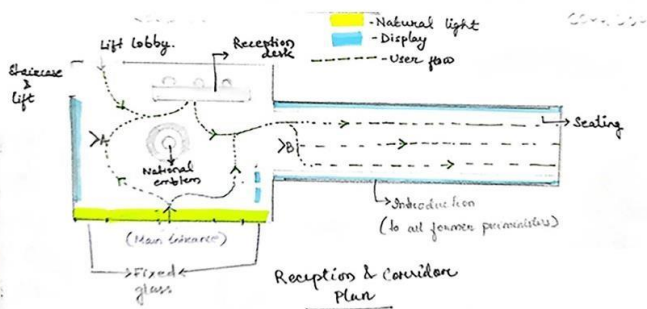 - Natural light
- Display
- User flow
Lift lobby.
Reception
desk
Staircase
&
lift
A
B
Seating
National
emblem
Introduction
(to all former primeministers)
(Main Entrance)
Fixed
glass
Reception & Corridor
Plan